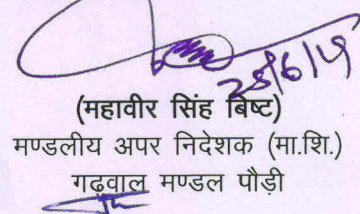 (महावीर सिंह बिष्ट)
मण्डलीय अपर निदेशक (मा.शि.)
गढ़वाल मण्डल पौड़ी